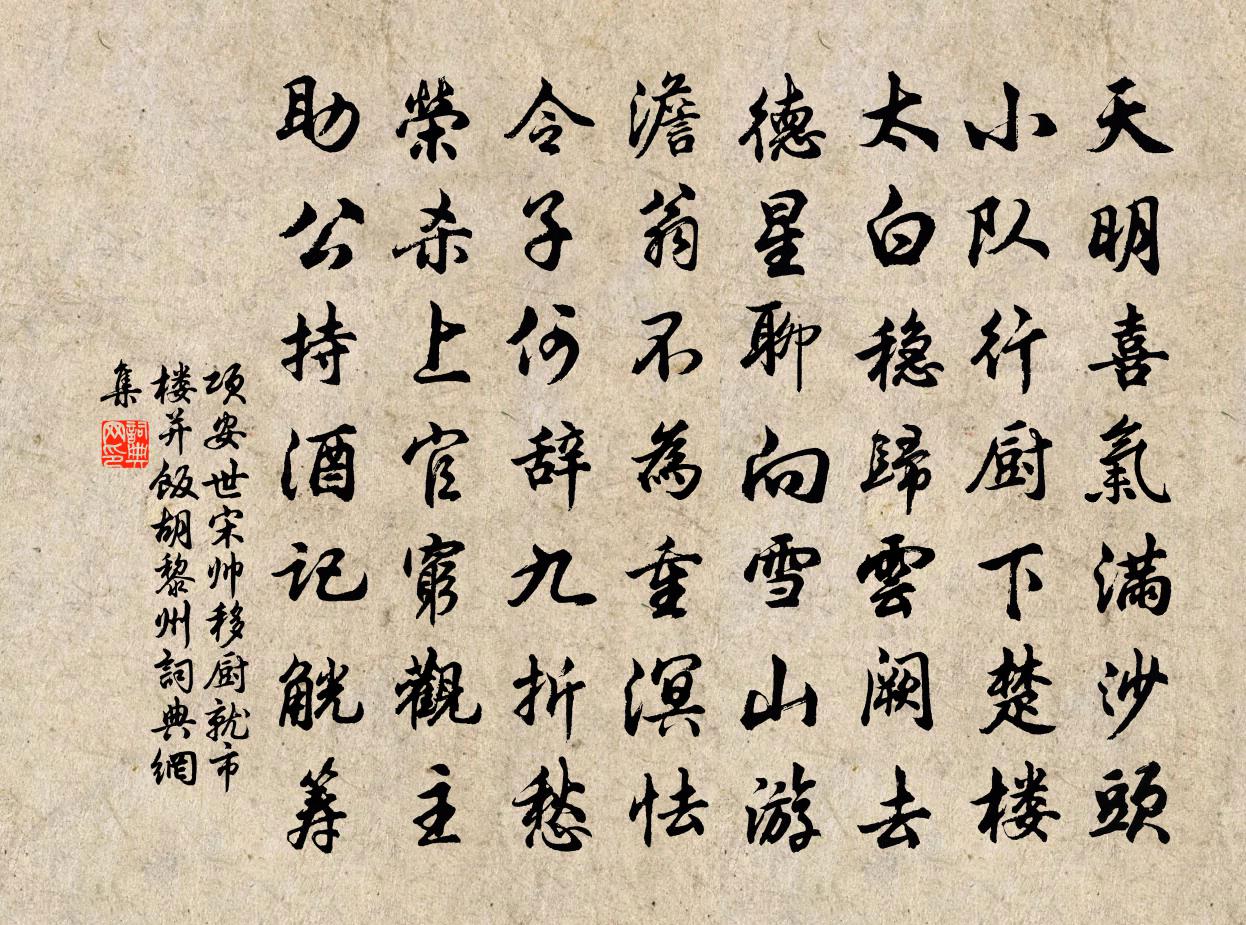 天明喜氣滿沙頭
小队行厨下楚楼
太白穏歸雲阙去
德星聊向雪山游
澹翁不為重溟怯
令子何辞九折愁
榮杀上官窮觀主
助公持酒记觥筹
项安世宋帅移厨就市
楼并飯胡黎州詞典網
集
詞典
网印